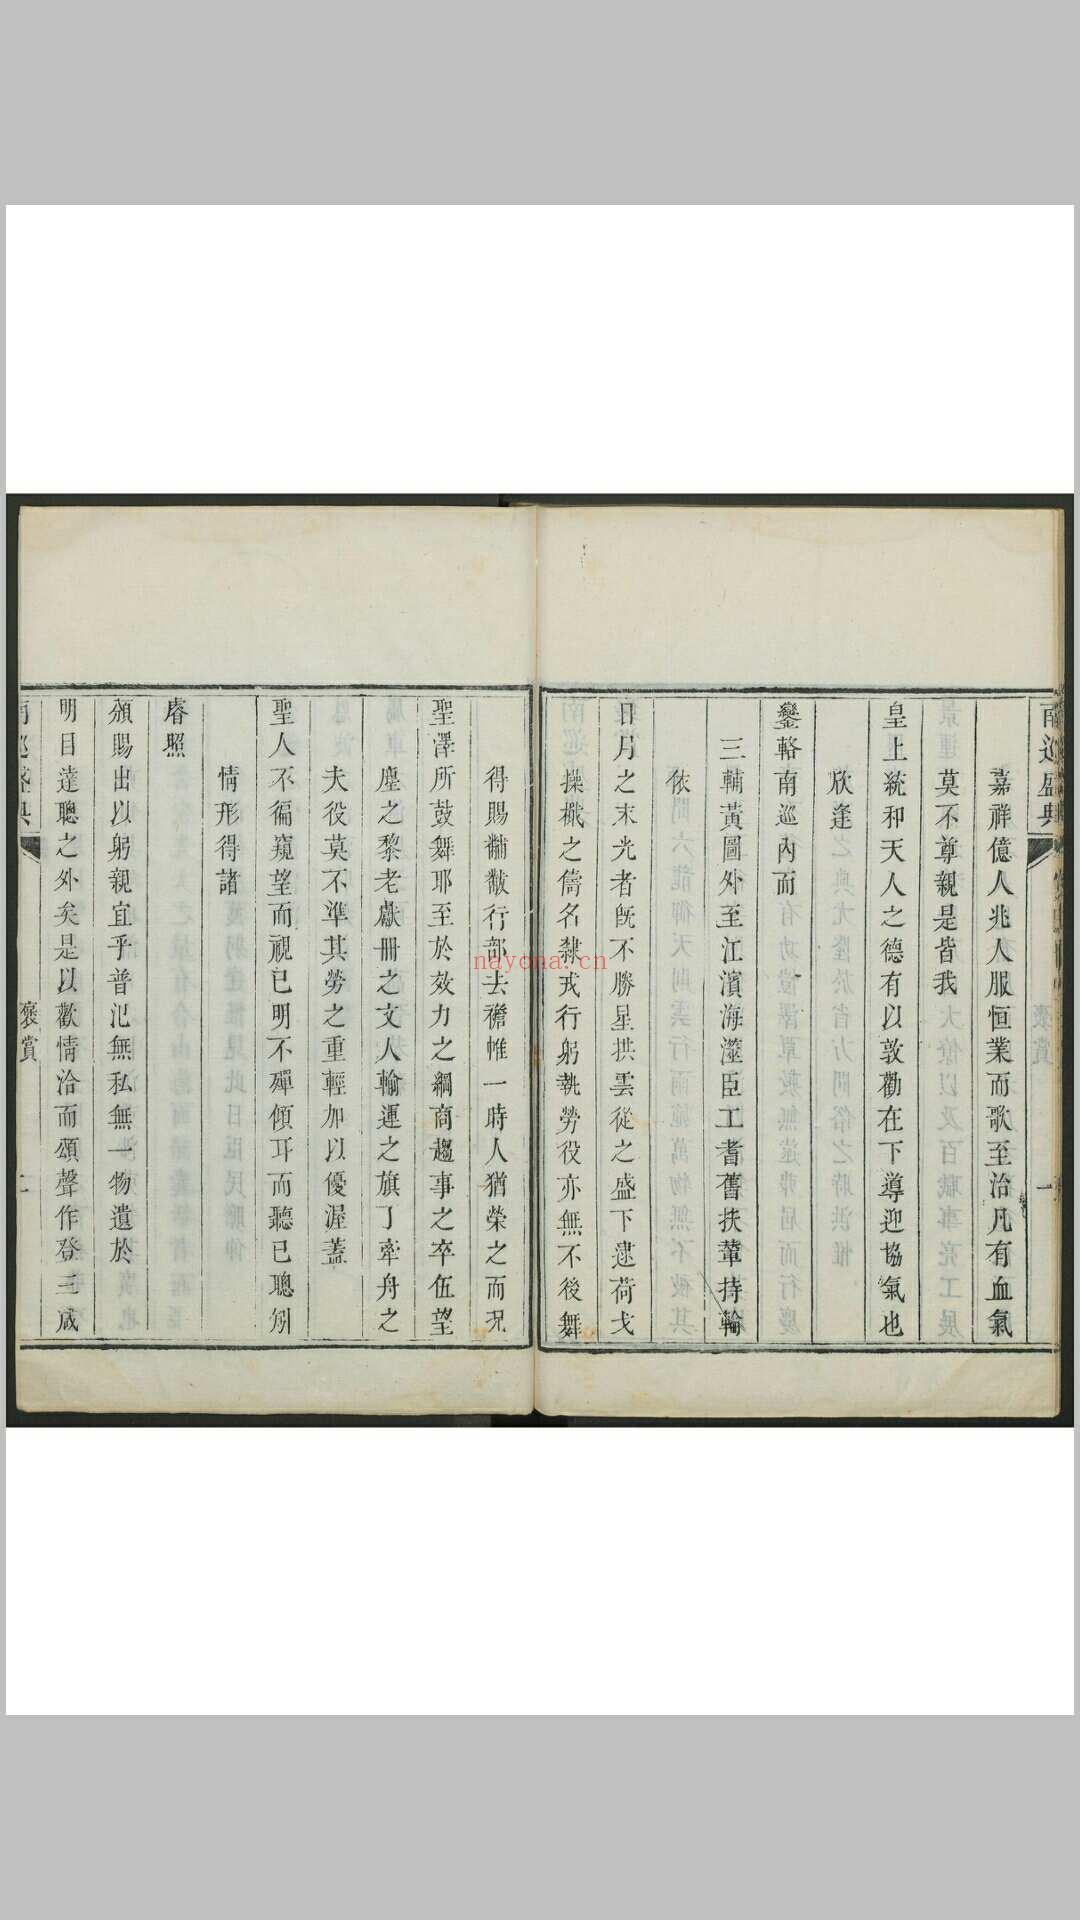 南巡盛典
一
嘉祥億人兆人服恒業而歌至治凡有血氣
莫不尊親是皆我
皇上統和天人之德有以敦勸在下導迎協氣也
欣逢
鑾輅南巡內而
三輔黃圖外至江濱海澨臣工耆舊扶輦持輪
依
日月之末光者旣不勝星拱雲從之盛下逮荷戈
操檝之儔名隸戎行躬執勞役亦無不後舞
得賜黼黻行部去襜帷一時人猶榮之而況
聖澤所鼓舞耶至於效力之綱商趨事之卒伍望
塵之黎老獻冊之文人輸運之旗丁牽舟之
夫役莫不準其勞之重輕加以優渥蓋
聖人不徧窺望而視已明不殫傾耳而聽已聰矧
情形得諸
睿照
頒賜出以躬親宜乎普氾無私無一物遺於
明目達聰之外矣是以歡情洽而頌聲作登三咸
南巡盛典
褒賞
nayona.cn